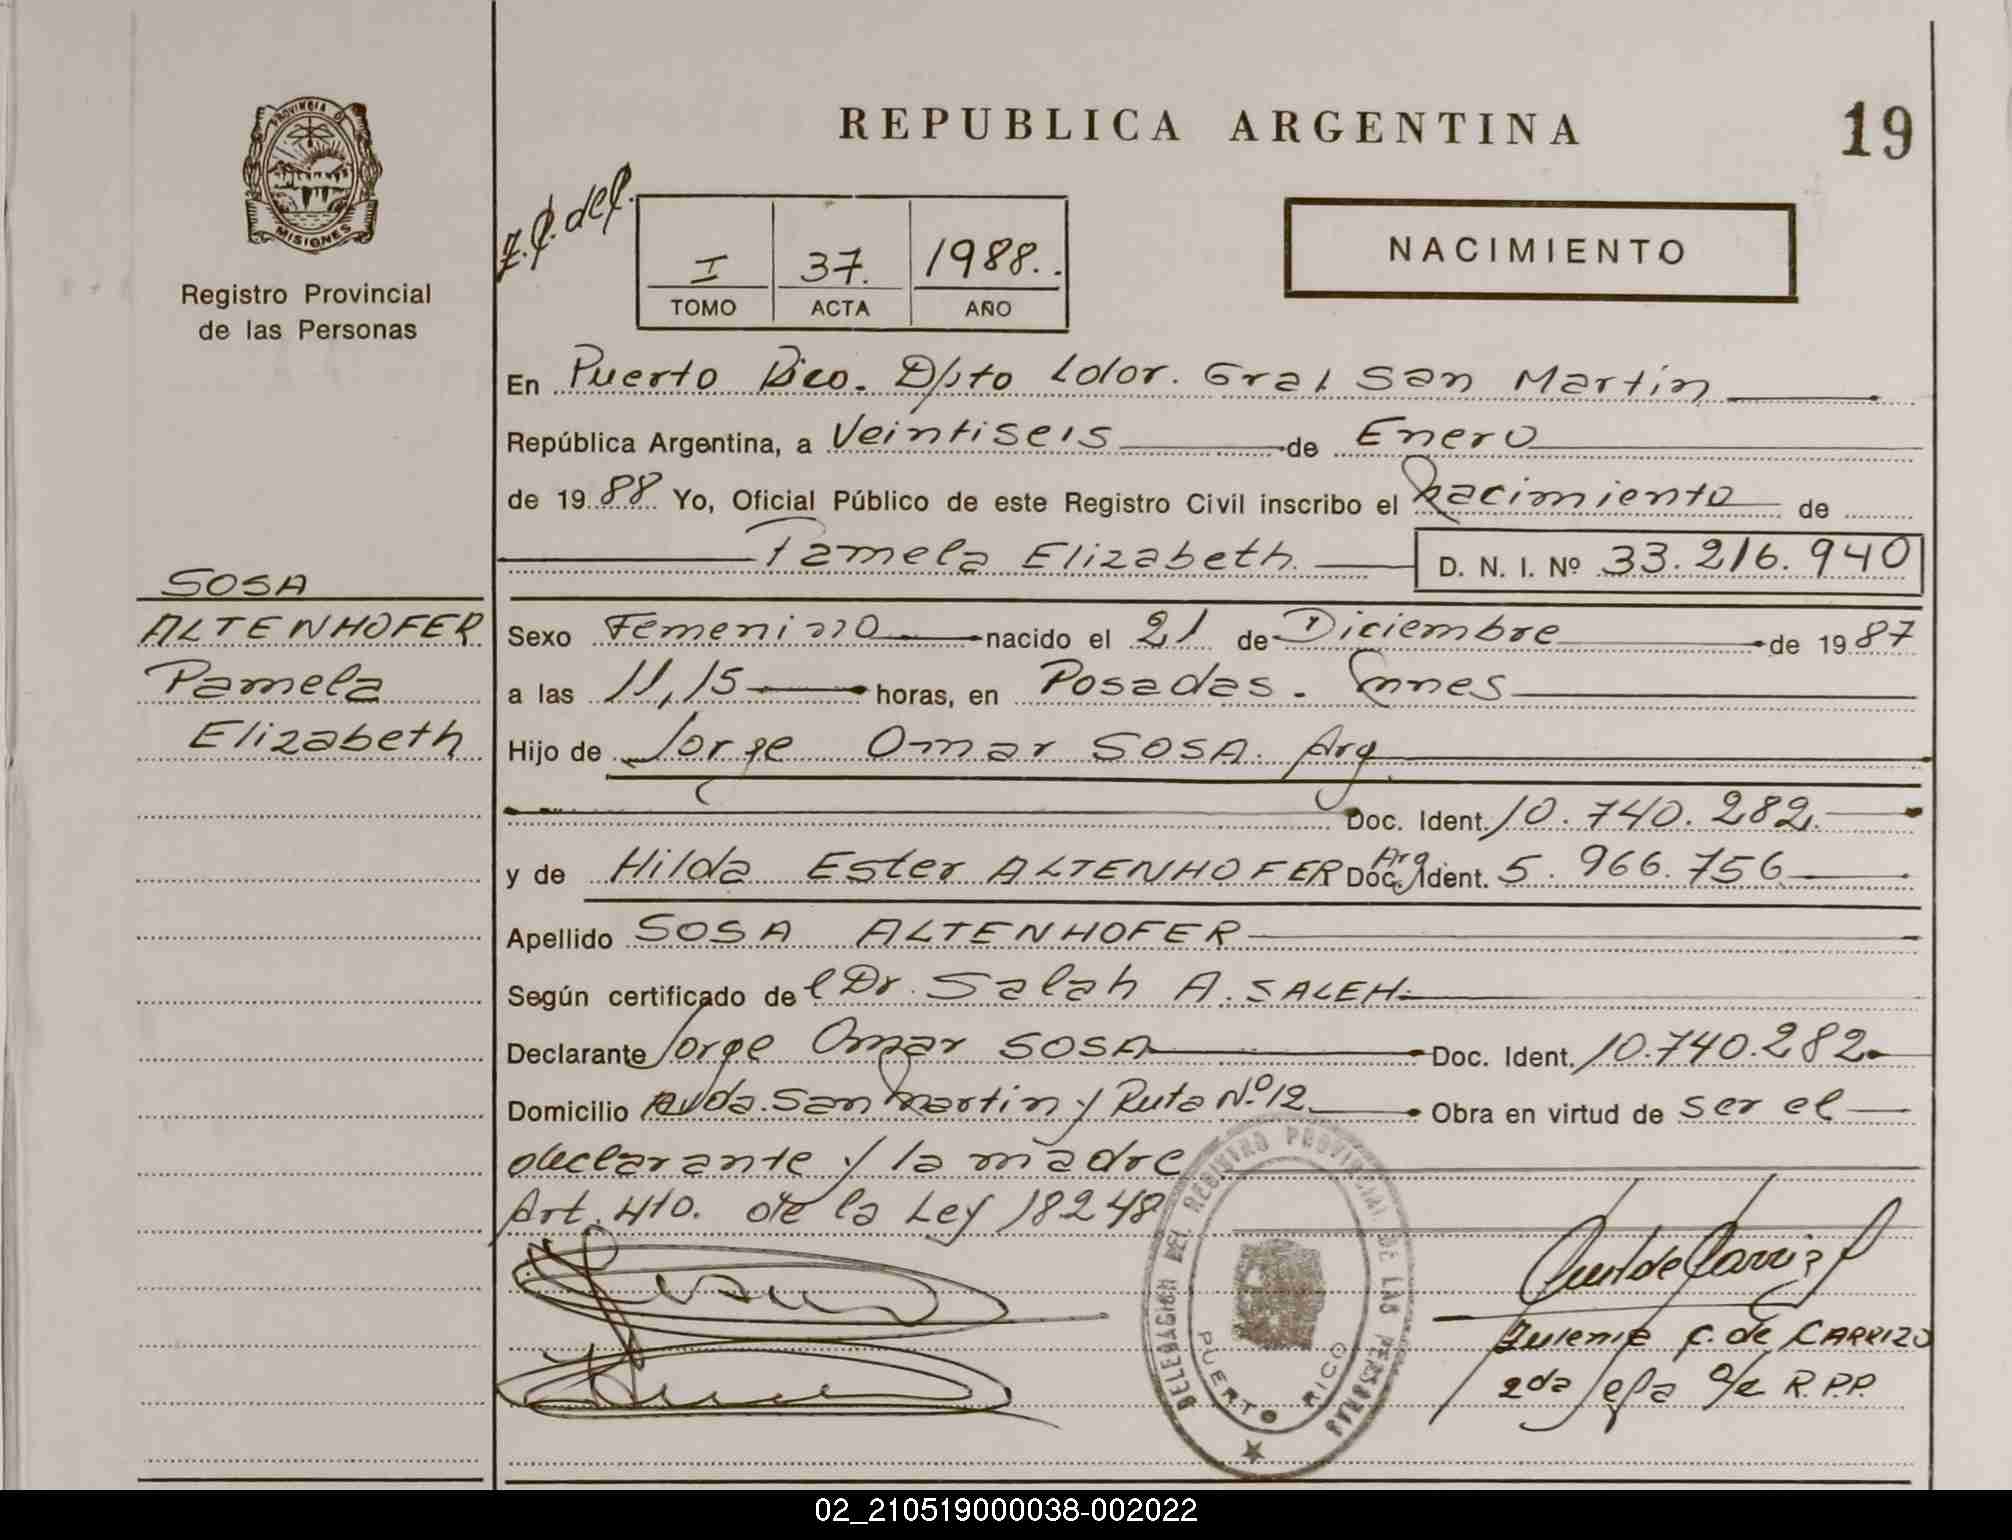 REPUBLICA ARGENTINA
19
PROVINCIA DE
MISIONES
Registro Provincial
de las Personas
I 37. 1988..
TOMO ACTA AÑO
NACIMIENTO
En Puerto Rico. Dpto Ldor. Gral San Martin
República Argentina, a Veintiseis de Enero
de 19 88 Yo, Oficial Público de este Registro Civil inscribo el Nacimiento de
Pamela Elizabeth. D. N. I. Nº 33.216.940
SOSA
ALTENHOFER
Pamela
Elizabeth
Sexo Femenino nacido el 21 de Diciembre de 19 87
a las 11,15 horas, en Posadas. Mnes
Hijo de Jorge Omar SOSA. Arg
Doc. Ident. 10.740.282.
y de Hilda Ester ALTENHOFER Arg Doc. Ident. 5.966.756
Apellido SOSA ALTENHOFER
Según certificado del Dr. Salah A. SALEH
Declarante Jorge Omar SOSA Doc. Ident. 10.740.282
Domicilio Avda. San Martin y Ruta Nº 12 Obra en virtud de ser el
declarante y la madre
Art. 410. de la Ley 18248
DELEGACION DEL REGISTRO PROVINCIAL DE LAS PERSONAS
PUERTO RICO
C. de CARRIZO
2da Jefa R.P.P.
02_210519000038-002022